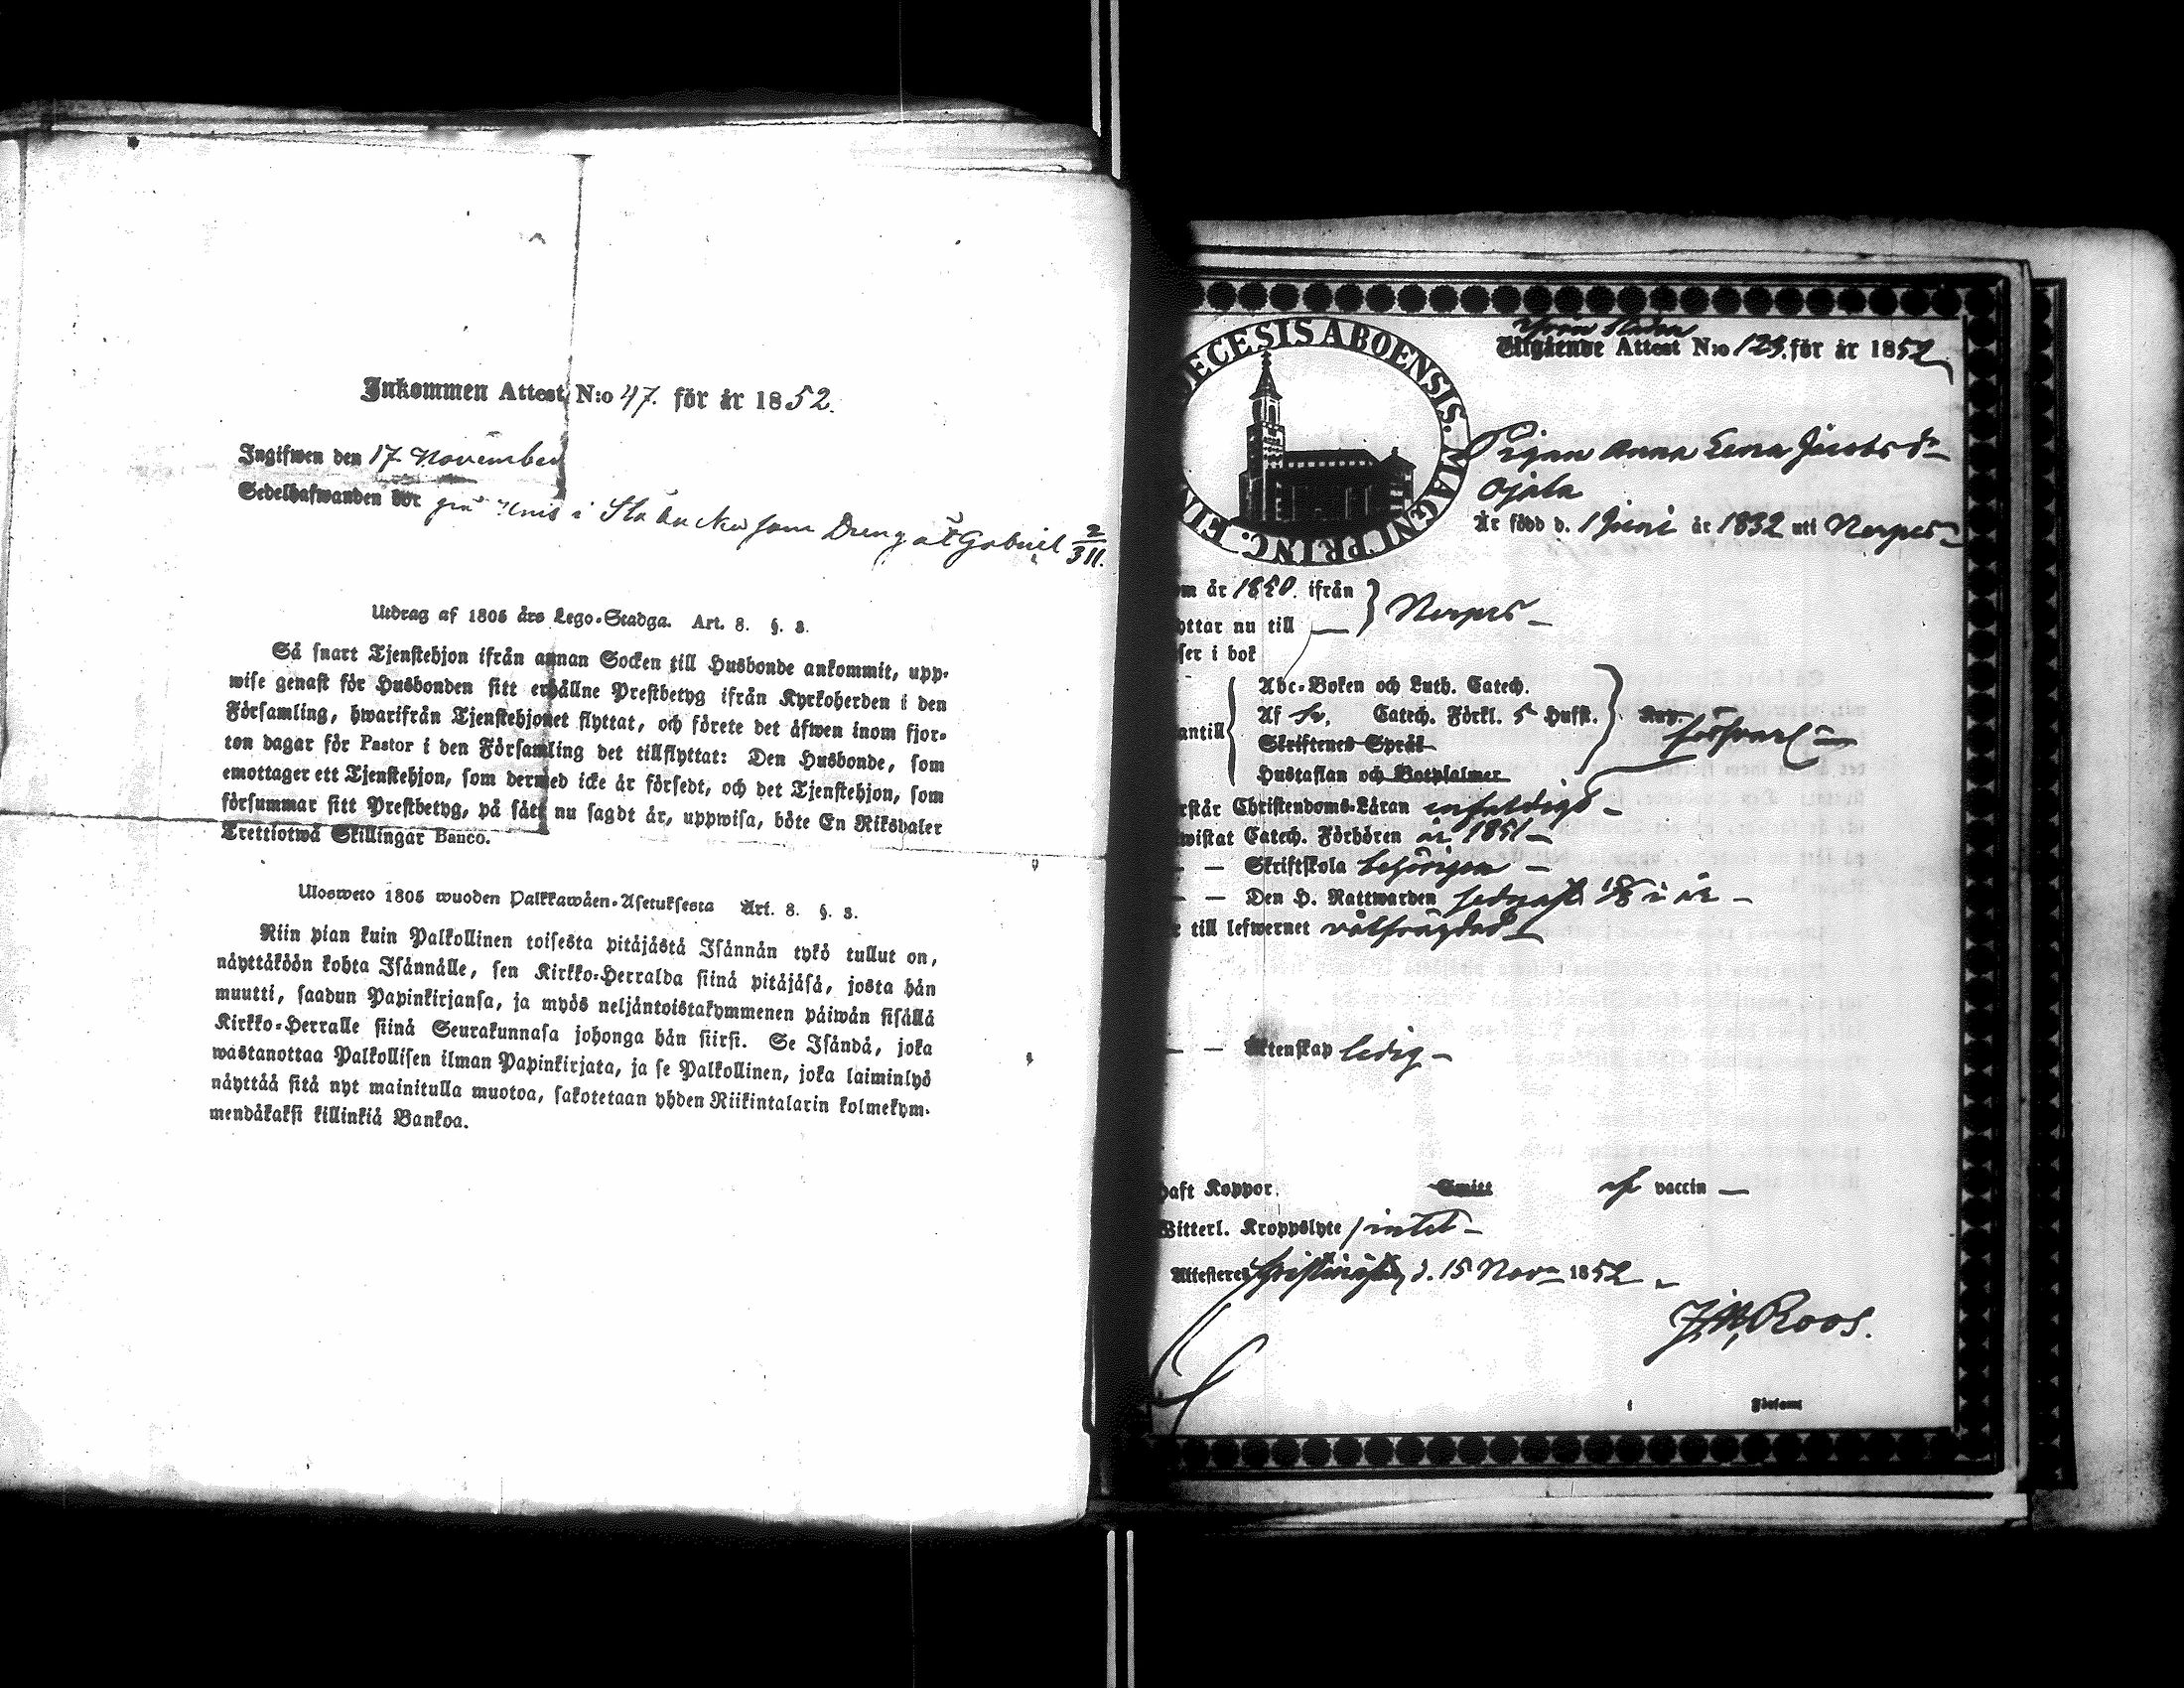 Inkommen Attest N:o 47. för år 1852.
Ingifwen den 17 November
Sedelhafwanden bor på i som Dreng åt Gabriel 2/311.
Utdrag af 1805 års Lego-Stadga. Art. 8. §. 3.
Så snart Tjenstehjon ifrån annan Socken till Husbonde ankommit, upp-
wise genast för Husbonden sitt erhållne Prestbetyg ifrån Kyrkoherden i den
Församling, hwarifrån Tjenstehjonet flyttat, och förete det åfwen inom fjor-
ton dagar för Pastor i den Församling det tillflyttat: Den Husbonde, som
emottager ett Tjenstehjon, som dermed icke år försedt, och det Tjenstehjon, som
försummar sitt Prestbetyg, på sått nu sagdt år, uppwisa, böte En Riksdaler
Trettiotwå Skillingar Banco.
Ulosweto 1805 wuoden Palkkawåen-Asetuksesta Art. 8. §. 3.
Niin pian kuin Palkollinen toisesta pitåjåstå Isånnån tykö tullut on,
nåyttåköön kohta Isånnålle, sen Kirkko-Herralda siinå pitåjåså, josta hån
muutti, saadun Papinkirjansa, ja myös neljåntoistakymmenen påiwån sisållå
Kirkko-Herralle siinå Seurakunnasa johonga hån siirsi. Se Isåndå, joka
wastanottaa Palkollisen ilman Papinkirjata, ja se Palkollinen, joka laiminlyö
nåyttåå sitå nyt mainitulla muotoa, sakotetaan yhden Riikintalarin kolmekym-
mendåkaksi killinkiå Bankoa.
ECESIS ABOENSIS. MAGNI PRINC. FIN
från Staden
Utgående Attest N:o 123. för år 1852
Pigan Anna Lena Jacobsd:r
Ojala
Är född d. 1 Juni år 1832 uti Nerpes
om år 1850. ifrån } Nerpes
yttar nu till
ser i bok
Abc-Boken och Luth. Catech.
antill { Af Sv. Catech. Förkl. 5 Hufst. } försvarl
Skriftenes Språk
Hustaflan och Botpsalmer
rstår Christendoms-Låran enfaldigt
wistat Catech. Förhören år 1851
— — Skriftskola behörigen
— — Den H. Nattwarden sednast i år
till lefwernet välfrägdad
— — Äktenskap ledig
haft Koppor. Smitt af vaccin
Witterl. Kroppslyte intet
Attesteres Christinestad, d. 15 Nov 1852
J.N. Roos.
i Församl